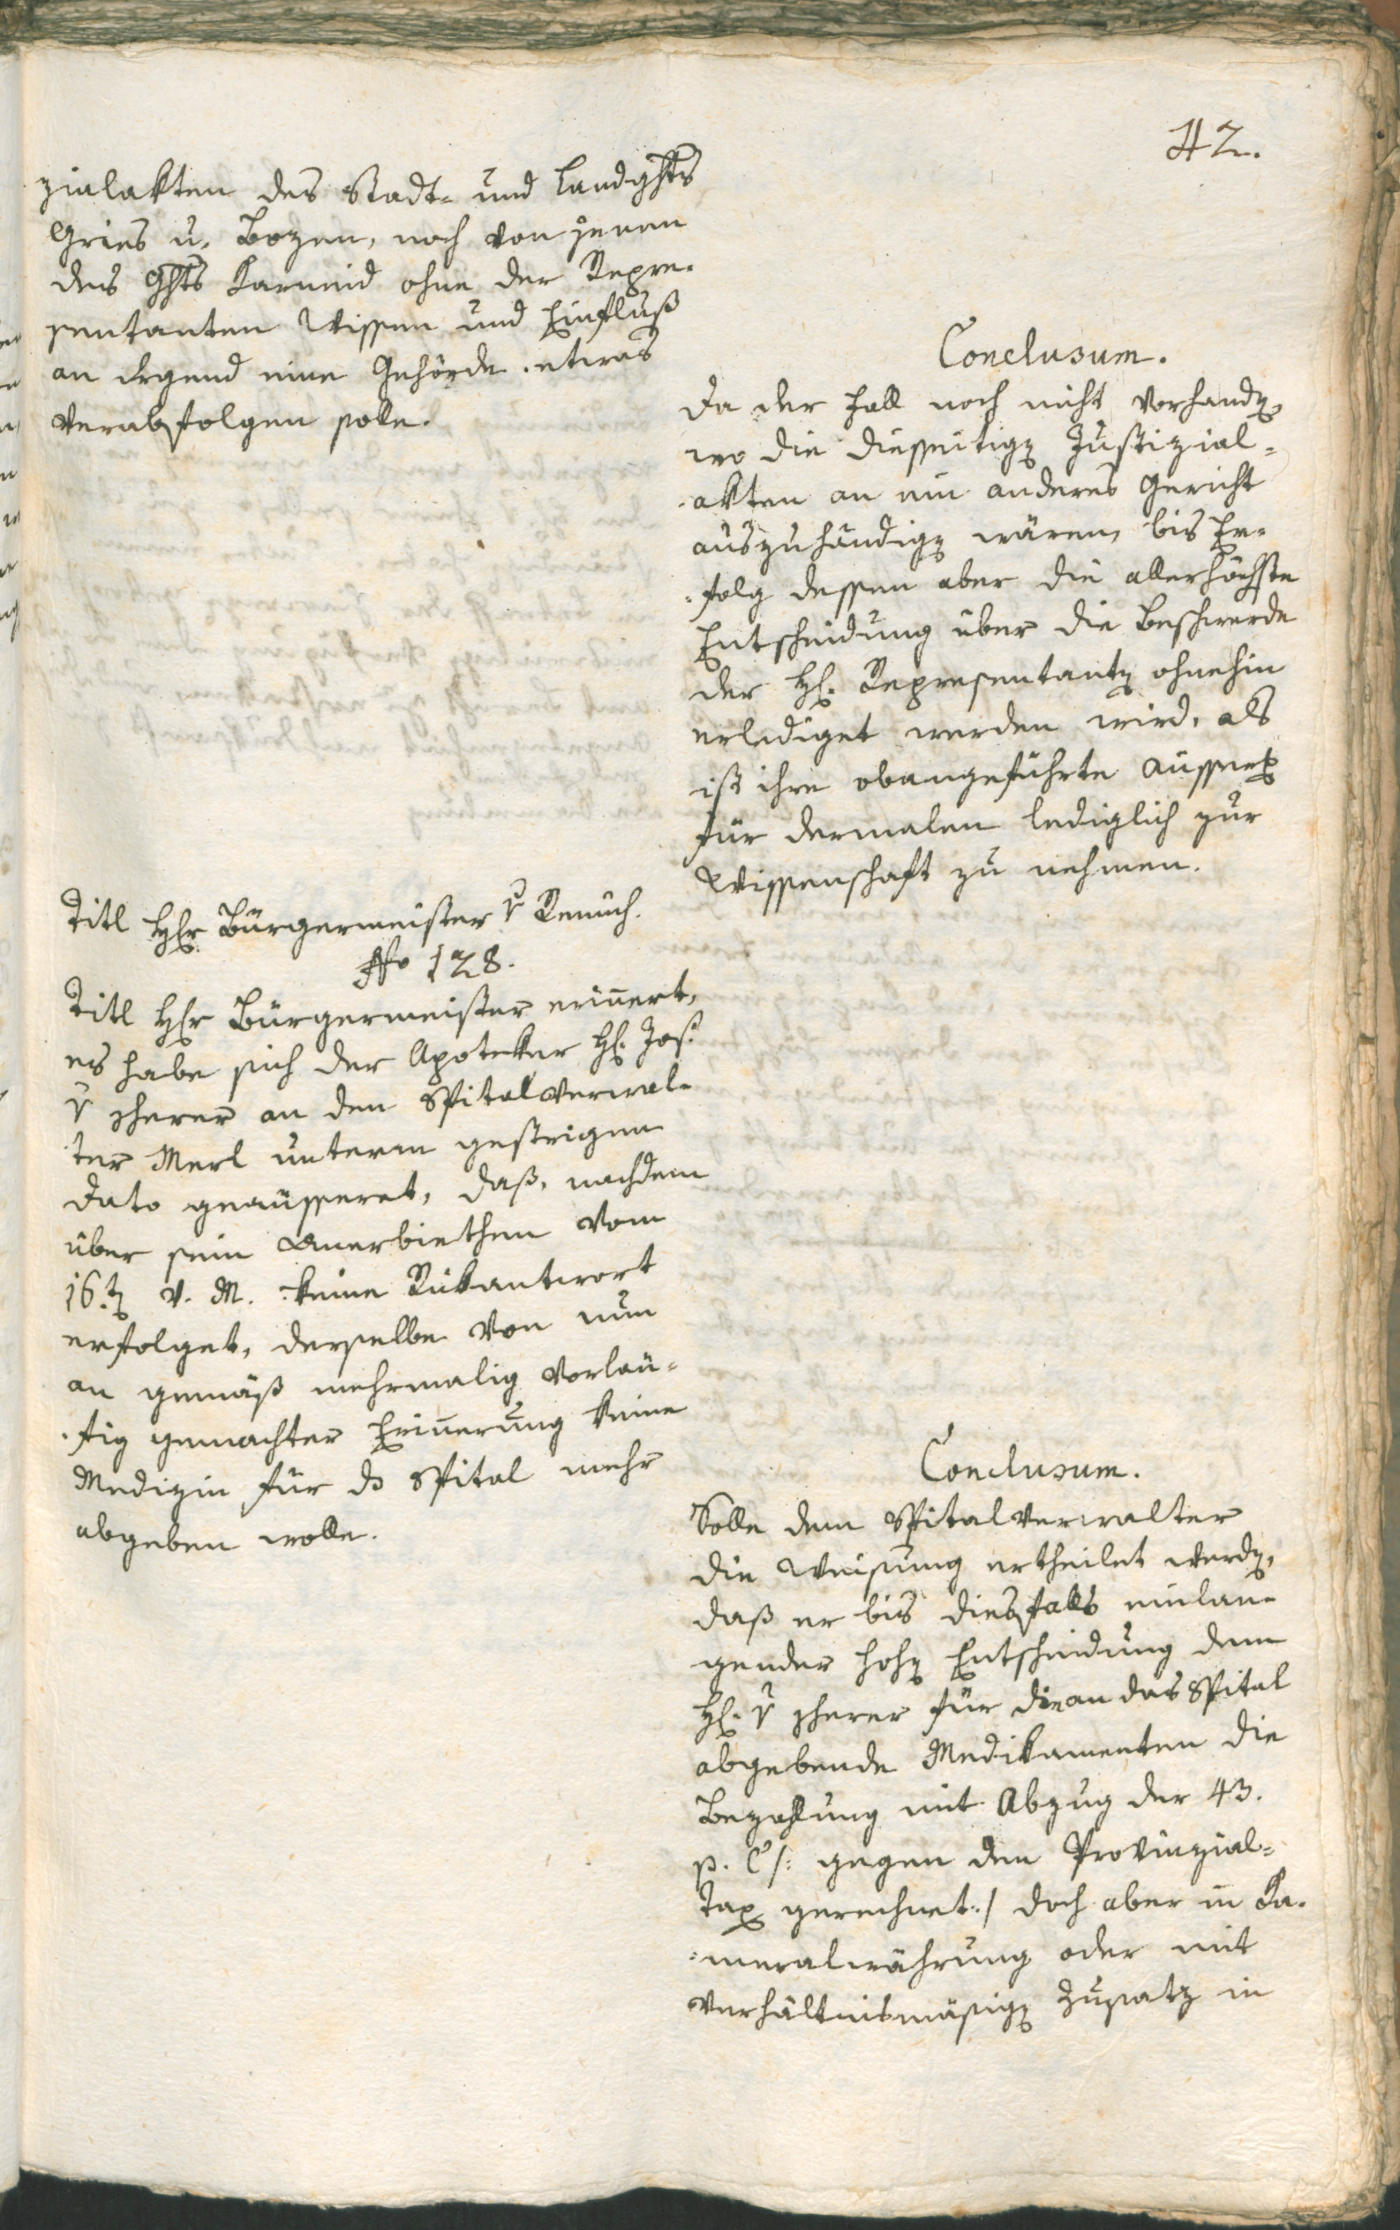 42.
zialakten des Stadt- und Landghts
Gries u. Bozen, noch von jenen
des Ghts Karneid ohne der Repre-
sentanten Wissen und Einfluß
an irgend eine Gehörde etwas
verabfolgen solle.
Conclusum.
Da der Fall noch nicht vorhandn,
wo die diesseitign Justizial-
akten an ein anderes Gericht
auszuhändign wären, bis Er-
folg dessen aber die allerhöchste
Entscheidung über die Beschwerde
der H. Representantn ohnehin
erlediget werden wird, als
ist ihre obangeführte
für dermalen lediglich zur
Wissenschaft zu nehmen.
Titl Hr Bürgermeister v Remich.
No 128.
Titl Hr Bürgermeister erinnert,
es habe sich der Apoteker H. Jos.
v zherer an den Spitalverwal-
ter Merl unterm gestrigen
Dato geäusseret, daß, nachdem
über sein Anerbiethen vom
16.tn v. M. keine Rükantwort
erfolget, derselbe von nun
an gemäß mehrmalig vorläu-
fig gemachter Erinnerung keine
Medizin für ds Spital mehr
abgeben wolle.
Conclusum.
Solle dem Spitalverwalter
die Weisung ertheilet werdn,
daß er bis diesfalls einlan-
gender hohn Entscheidung dem
H. v zherer für die an das Spital
abgebende Medikamenten die
Bezahlung mit Abzug der 43.
p. C /: gegen den Provinzial-
Tax gerechnet :/ doch aber in Ka-
meralwährung oder mit
verhältnismäsign Zusatz in